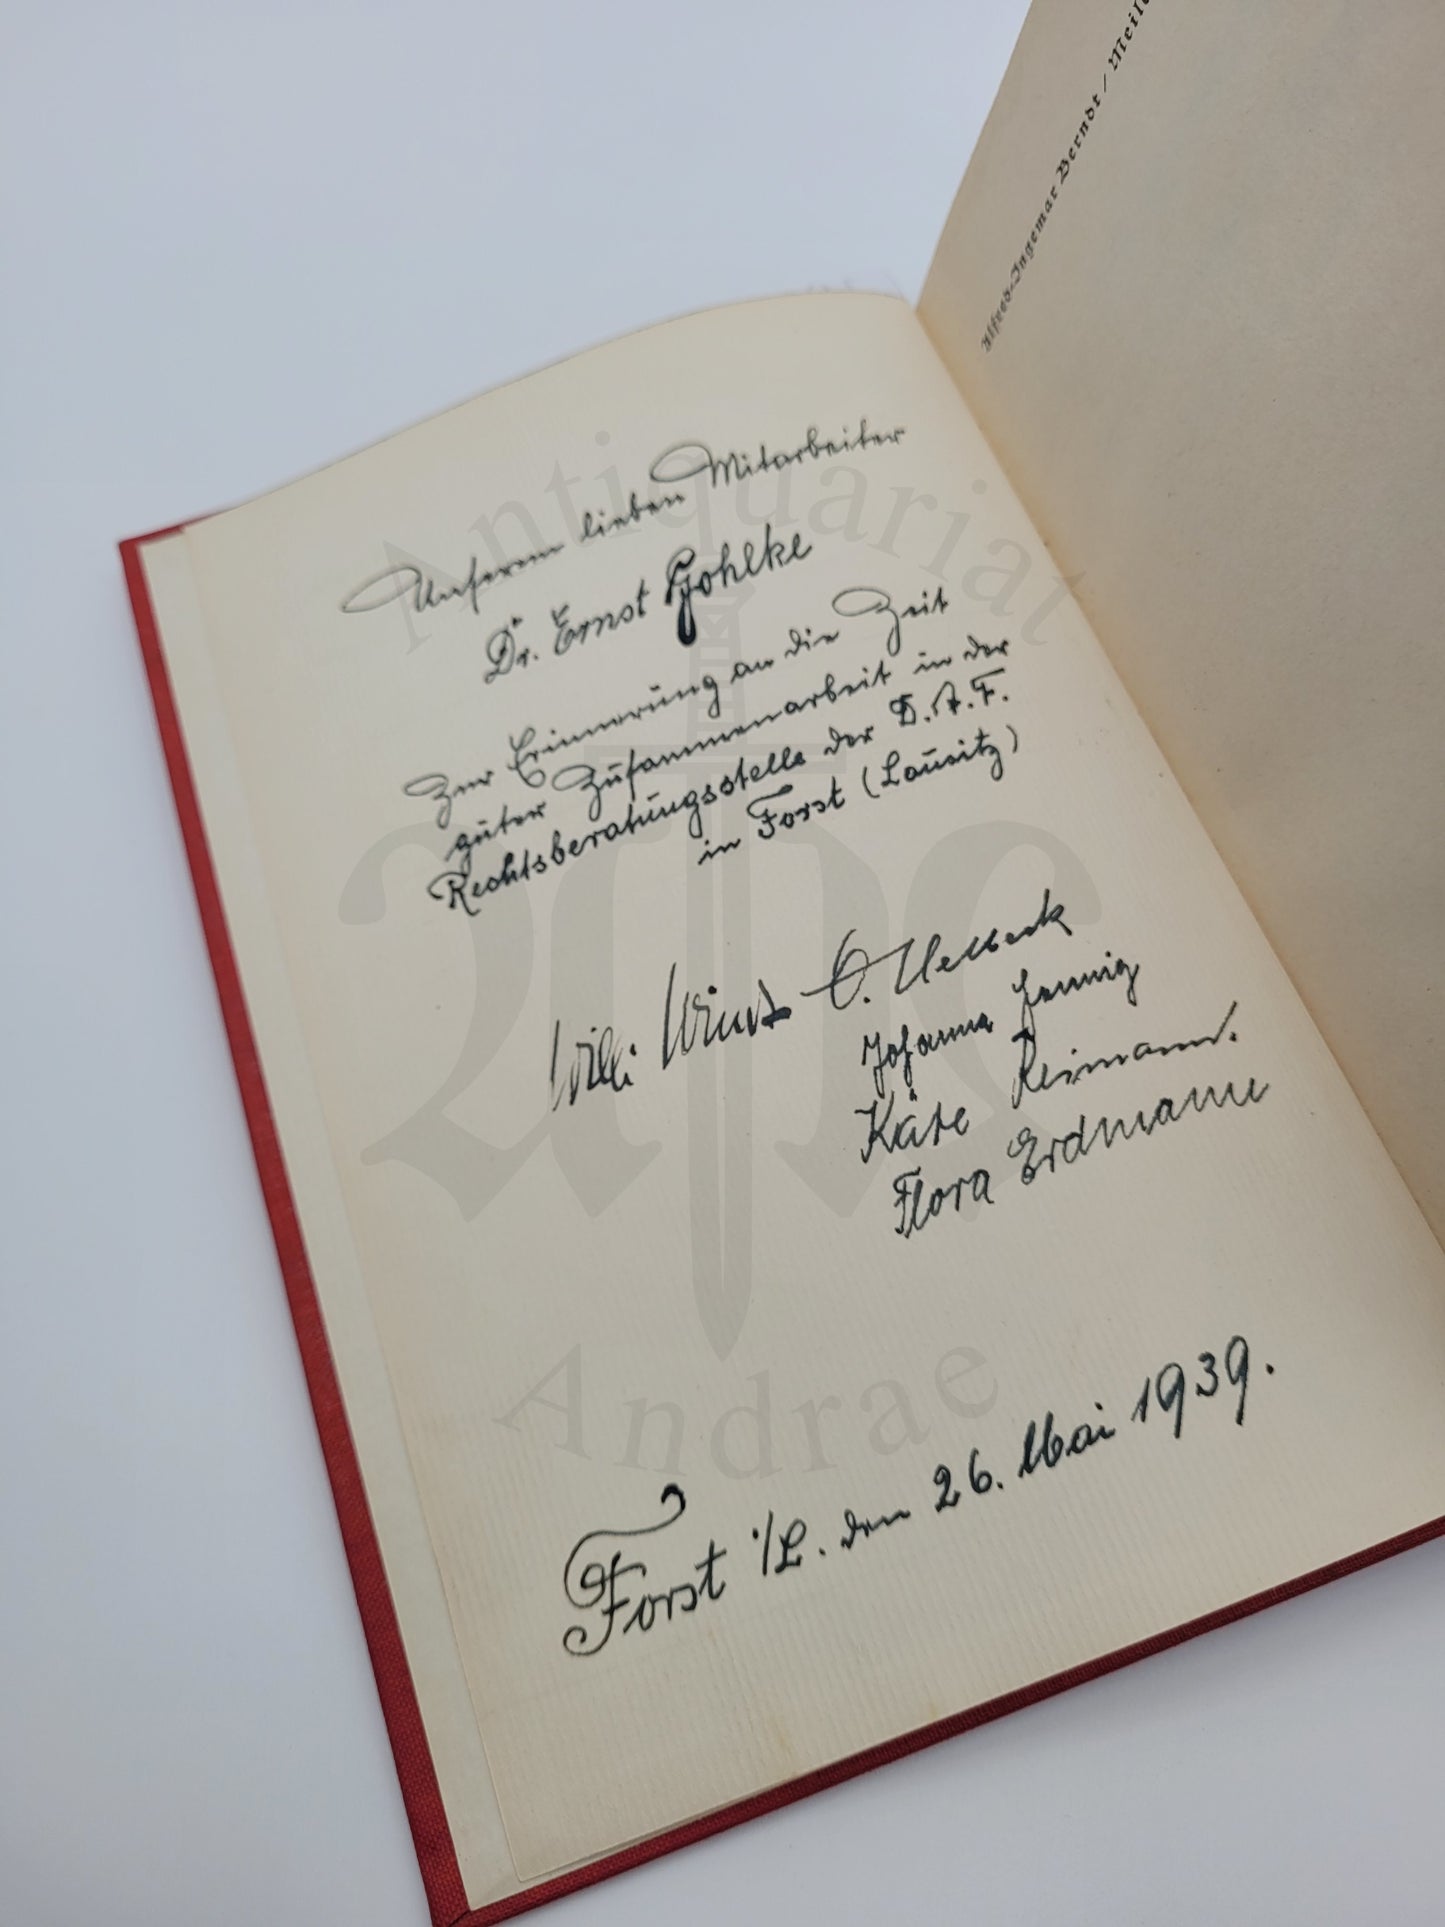 Unserm lieben Mitarbeiter
Dr. Ernst Pohlke
Zur Erinnerung an die Zeit
guter Zusammenarbeit in der
Rechtsberatungsstelle der D.A.F.
in Forst (Lausitz)
Willi
Johanna Hennig
Käte Reimann.
Flora Erdmann
Forst i/L. den 26. Mai 1939.
Alfred-Ingemar Berndt /
Antiquariat
Andrae